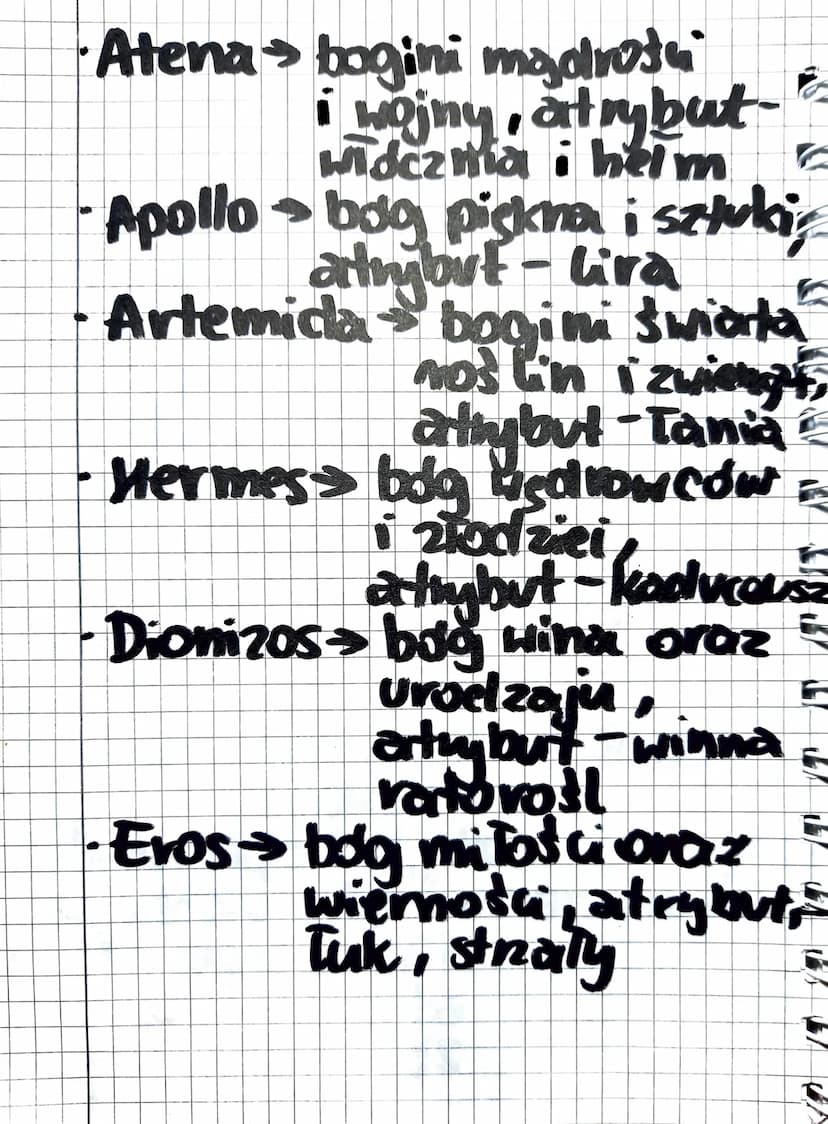 · Atena → bogini mądrości
i wojny, atrybut -
włócznia i hełm
· Apollo → bóg piękna i sztuki,
atrybut - lira
· Artemida → bogini świata
roślin i zwierząt,
atrybut - łania
· Hermes → bóg wędrowców
i złodziei,
atrybut - kaduceusz
· Dionizos → bóg wina oraz
urodzaju,
atrybut - winna
latorośl
· Eros → bóg miłości oraz
wierności, atrybut,
łuk, strzały